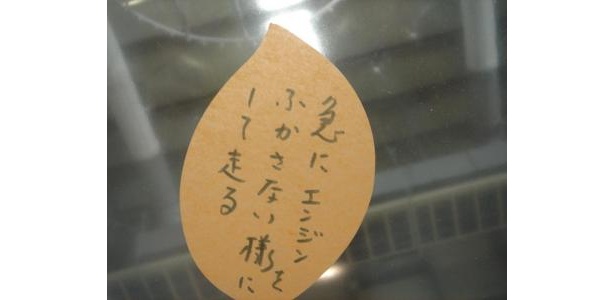 急にエンジンを
ふかさない様に
して走る